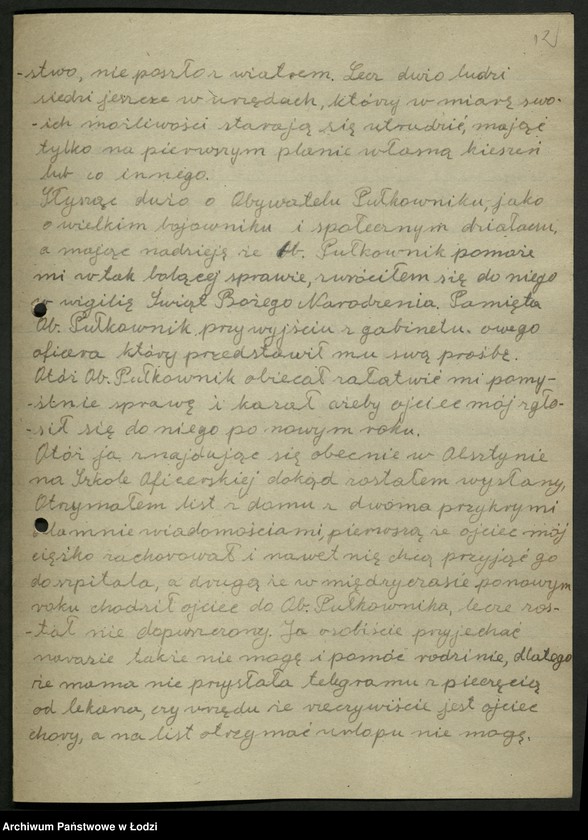 12)
-stwo, nie poszło z wiatrem. Lecz dużo ludzi
siedzi jeszcze w urzędach, który w miarę swo-
-ich możliwości starają się utrudzić, mając
tylko na pierwszym planie własną kieszeń
lub co innego.
Słysząc dużo o Obywatelu Pułkowniku, jako
o wielkim bojowniku i społecznym działaczu,
a mając nadzieję że Ob. Pułkownik pomoże
mi w tak bolącej sprawie, zwróciłem się do niego
w wigilię Świąt Bożego Narodzenia. Pamięta
Ob. Pułkownik przy wyjściu z gabinetu owego
oficera który przedstawił mu swą prośbę.
Otóż Ob. Pułkownik obiecał załatwić mi pomy-
-ślnie sprawę i kazał ażeby ojciec mój zgło-
-sił się do niego po nowym roku.
Otóż ja znajdując się obecnie w Olsztynie
na Szkole Oficerskiej dokąd zostałem wysłany,
Otrzymałem list z domu z dwoma przykrymi
dlamnie wiadomościami, pierwszą że ojciec mój
ciężko zachorował i nawet nię chcą przyjąć go
do szpitala, a drugą że w międzyczasie ponowym
roku chodził ojciec do Ob. Pułkownika, lecz zos-
-tał nie dopuszczony. Ja osobiście przyjechać
narazie także nie mogę i pomóc rodzinie, dlatego
że mama nie przysłała telegramu z pieczęcią
od lekarza, czy urzędu że rzeczywiście jest ojciec
chory, a na list otrzymać urlopu nie mogę.
Archiwum Państwowe w Łodzi